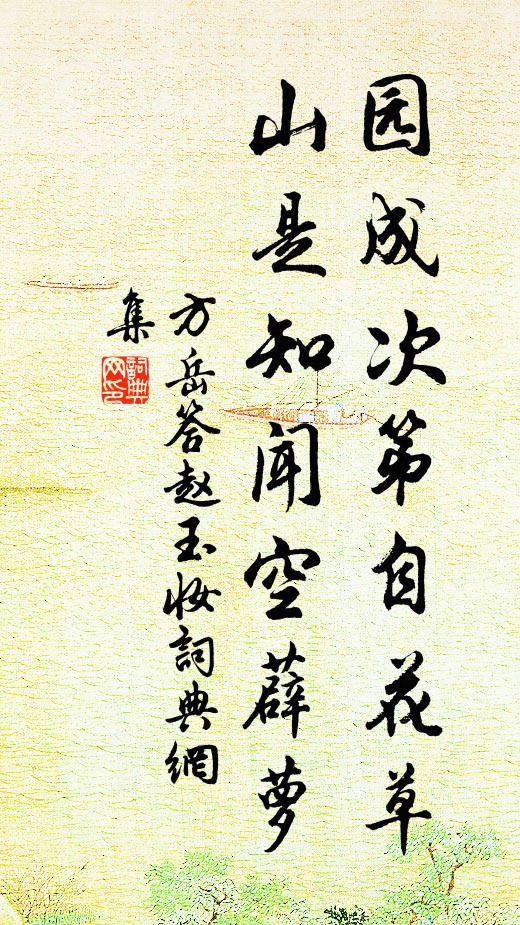 园成次第自花草
山是知闻空薜萝
方岳答赵玉妆詞典網
集
詞典网印